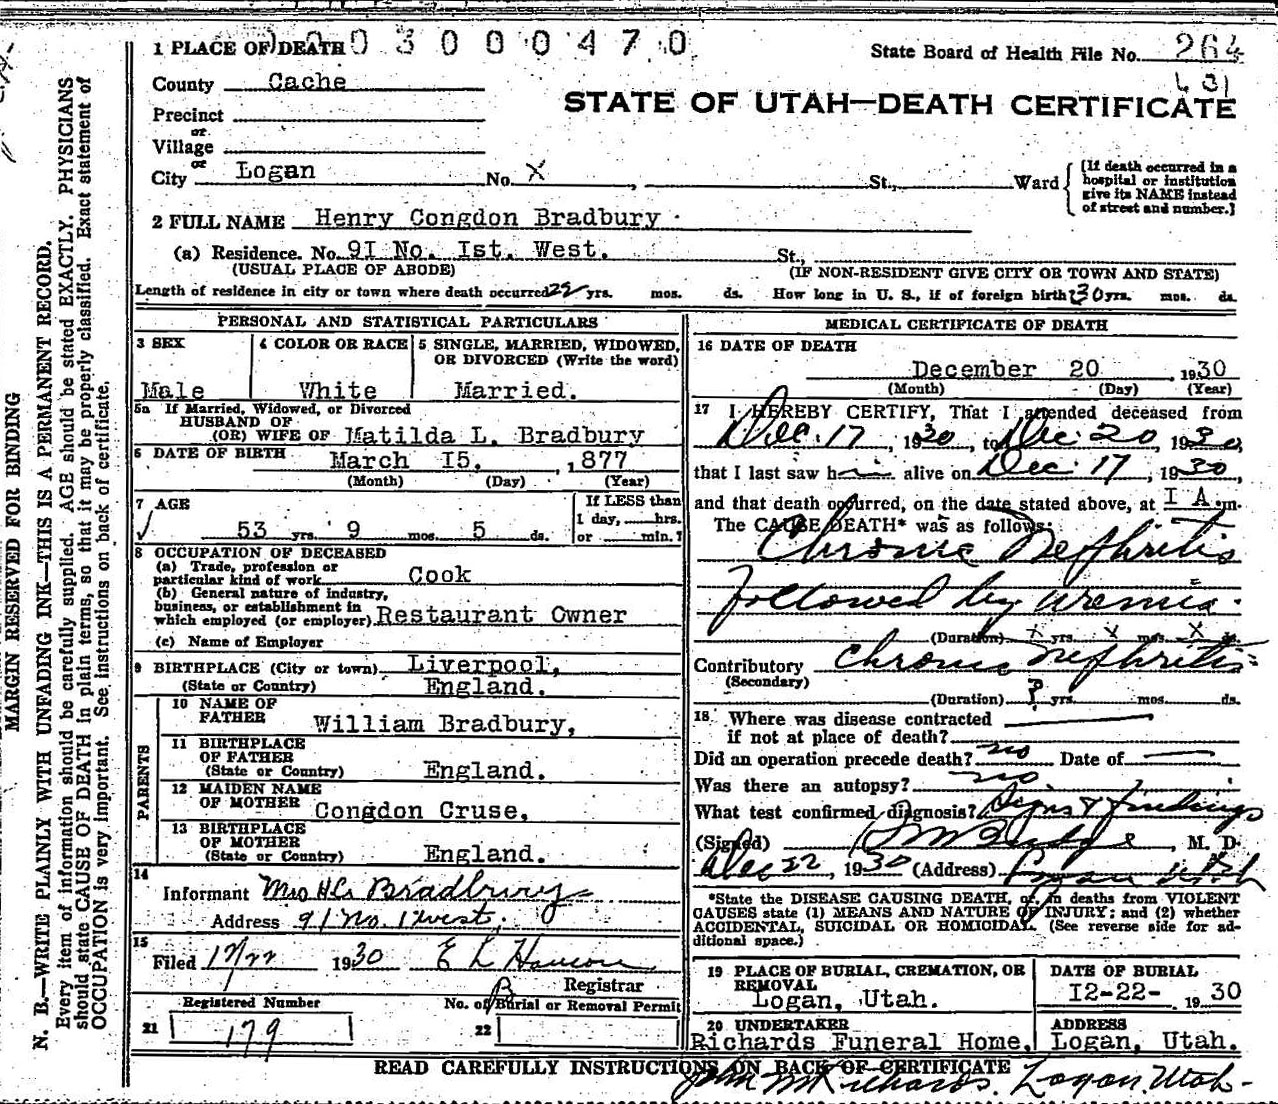 1 PLACE OF DEATH 0 0 3 0 0 0 4 7 0
State Board of Health File No. 264
631
County Cache
STATE OF UTAH—DEATH CERTIFICATE
Precinct
or
Village
or
City Logan No. X St., Ward
(If death occurred in a hospital or institution give its NAME instead of street and number.)
2 FULL NAME Henry Congdon Bradbury
(a) Residence. No. 9I No. Ist. West. St.,
(USUAL PLACE OF ABODE) (IF NON-RESIDENT GIVE CITY OR TOWN AND STATE)
Length of residence in city or town where death occurred 29 yrs. mos. ds. How long in U. S., if of foreign birth? 30 yrs. mos. ds.
PERSONAL AND STATISTICAL PARTICULARS
3 SEX 4 COLOR OR RACE 5 SINGLE, MARRIED, WIDOWED,
OR DIVORCED (Write the word)
Male White Married.
5a If Married, Widowed, or Divorced
HUSBAND OF
(OR) WIFE OF Matilda L. Bradbury
6 DATE OF BIRTH March I5, 1877
(Month) (Day) (Year)
7 AGE
If LESS than
1 day, hrs.
or min.?
53 yrs. 9 mos. 5 ds.
8 OCCUPATION OF DECEASED
(a) Trade, profession or
particular kind of work Cook
(b) General nature of industry,
business, or establishment in
which employed (or employer) Restaurant Owner
(c) Name of Employer
9 BIRTHPLACE (City or town) Liverpool,
(State or Country) England.
PARENTS
10 NAME OF
FATHER William Bradbury,
11 BIRTHPLACE
OF FATHER
(State or Country) England.
12 MAIDEN NAME
OF MOTHER Congdon Cruse,
13 BIRTHPLACE
OF MOTHER
(State or Country) England.
14
Informant Mrs H C Bradbury
Address 91 No. 1 West.
15
Filed 12/22 1930 E L Hanson
Registrar
Registered Number No. of Burial or Removal Permit
21 179 22
MEDICAL CERTIFICATE OF DEATH
16 DATE OF DEATH
December 20 , 1930
(Month) (Day) (Year)
17 I HEREBY CERTIFY, That I attended deceased from
Dec. 17, 1930, to Dec. 20, 1930,
that I last saw him alive on Dec. 17, 1930,
and that death occurred, on the date stated above, at I A. m.
The CAUSE DEATH* was as follows:
Chronic Nephritis
followed by uremia.
(Duration) X yrs. X mos. X ds.
Contributory Chronic Nephritis
(Secondary)
(Duration) ? yrs. mos. ds.
18 Where was disease contracted
if not at place of death?
Did an operation precede death? no Date of
Was there an autopsy? no
What test confirmed diagnosis? Signs & findings
(Signed) , M. D.
Dec 22, 1930 (Address) Utah
*State the DISEASE CAUSING DEATH, or, in deaths from VIOLENT
CAUSES state (1) MEANS AND NATURE OF INJURY; and (2) whether
ACCIDENTAL, SUICIDAL OR HOMICIDAL. (See reverse side for ad-
ditional space.)
19 PLACE OF BURIAL, CREMATION, OR
REMOVAL
Logan, Utah.
DATE OF BURIAL
I2-22- 1930
20 UNDERTAKER
Richards Funeral Home,
ADDRESS
Logan, Utah.
READ CAREFULLY INSTRUCTIONS ON BACK OF CERTIFICATE
John M Richards. Logan. Utah-
MARGIN RESERVED FOR BINDING
N. B.—WRITE PLAINLY WITH UNFADING INK—THIS IS A PERMANENT RECORD.
Every item of information should be carefully supplied. AGE should be stated EXACTLY. PHYSICIANS
should state CAUSE OF DEATH in plain terms, so that it may be properly classified. Exact statement of
OCCUPATION is very important. See instructions on back of certificate.